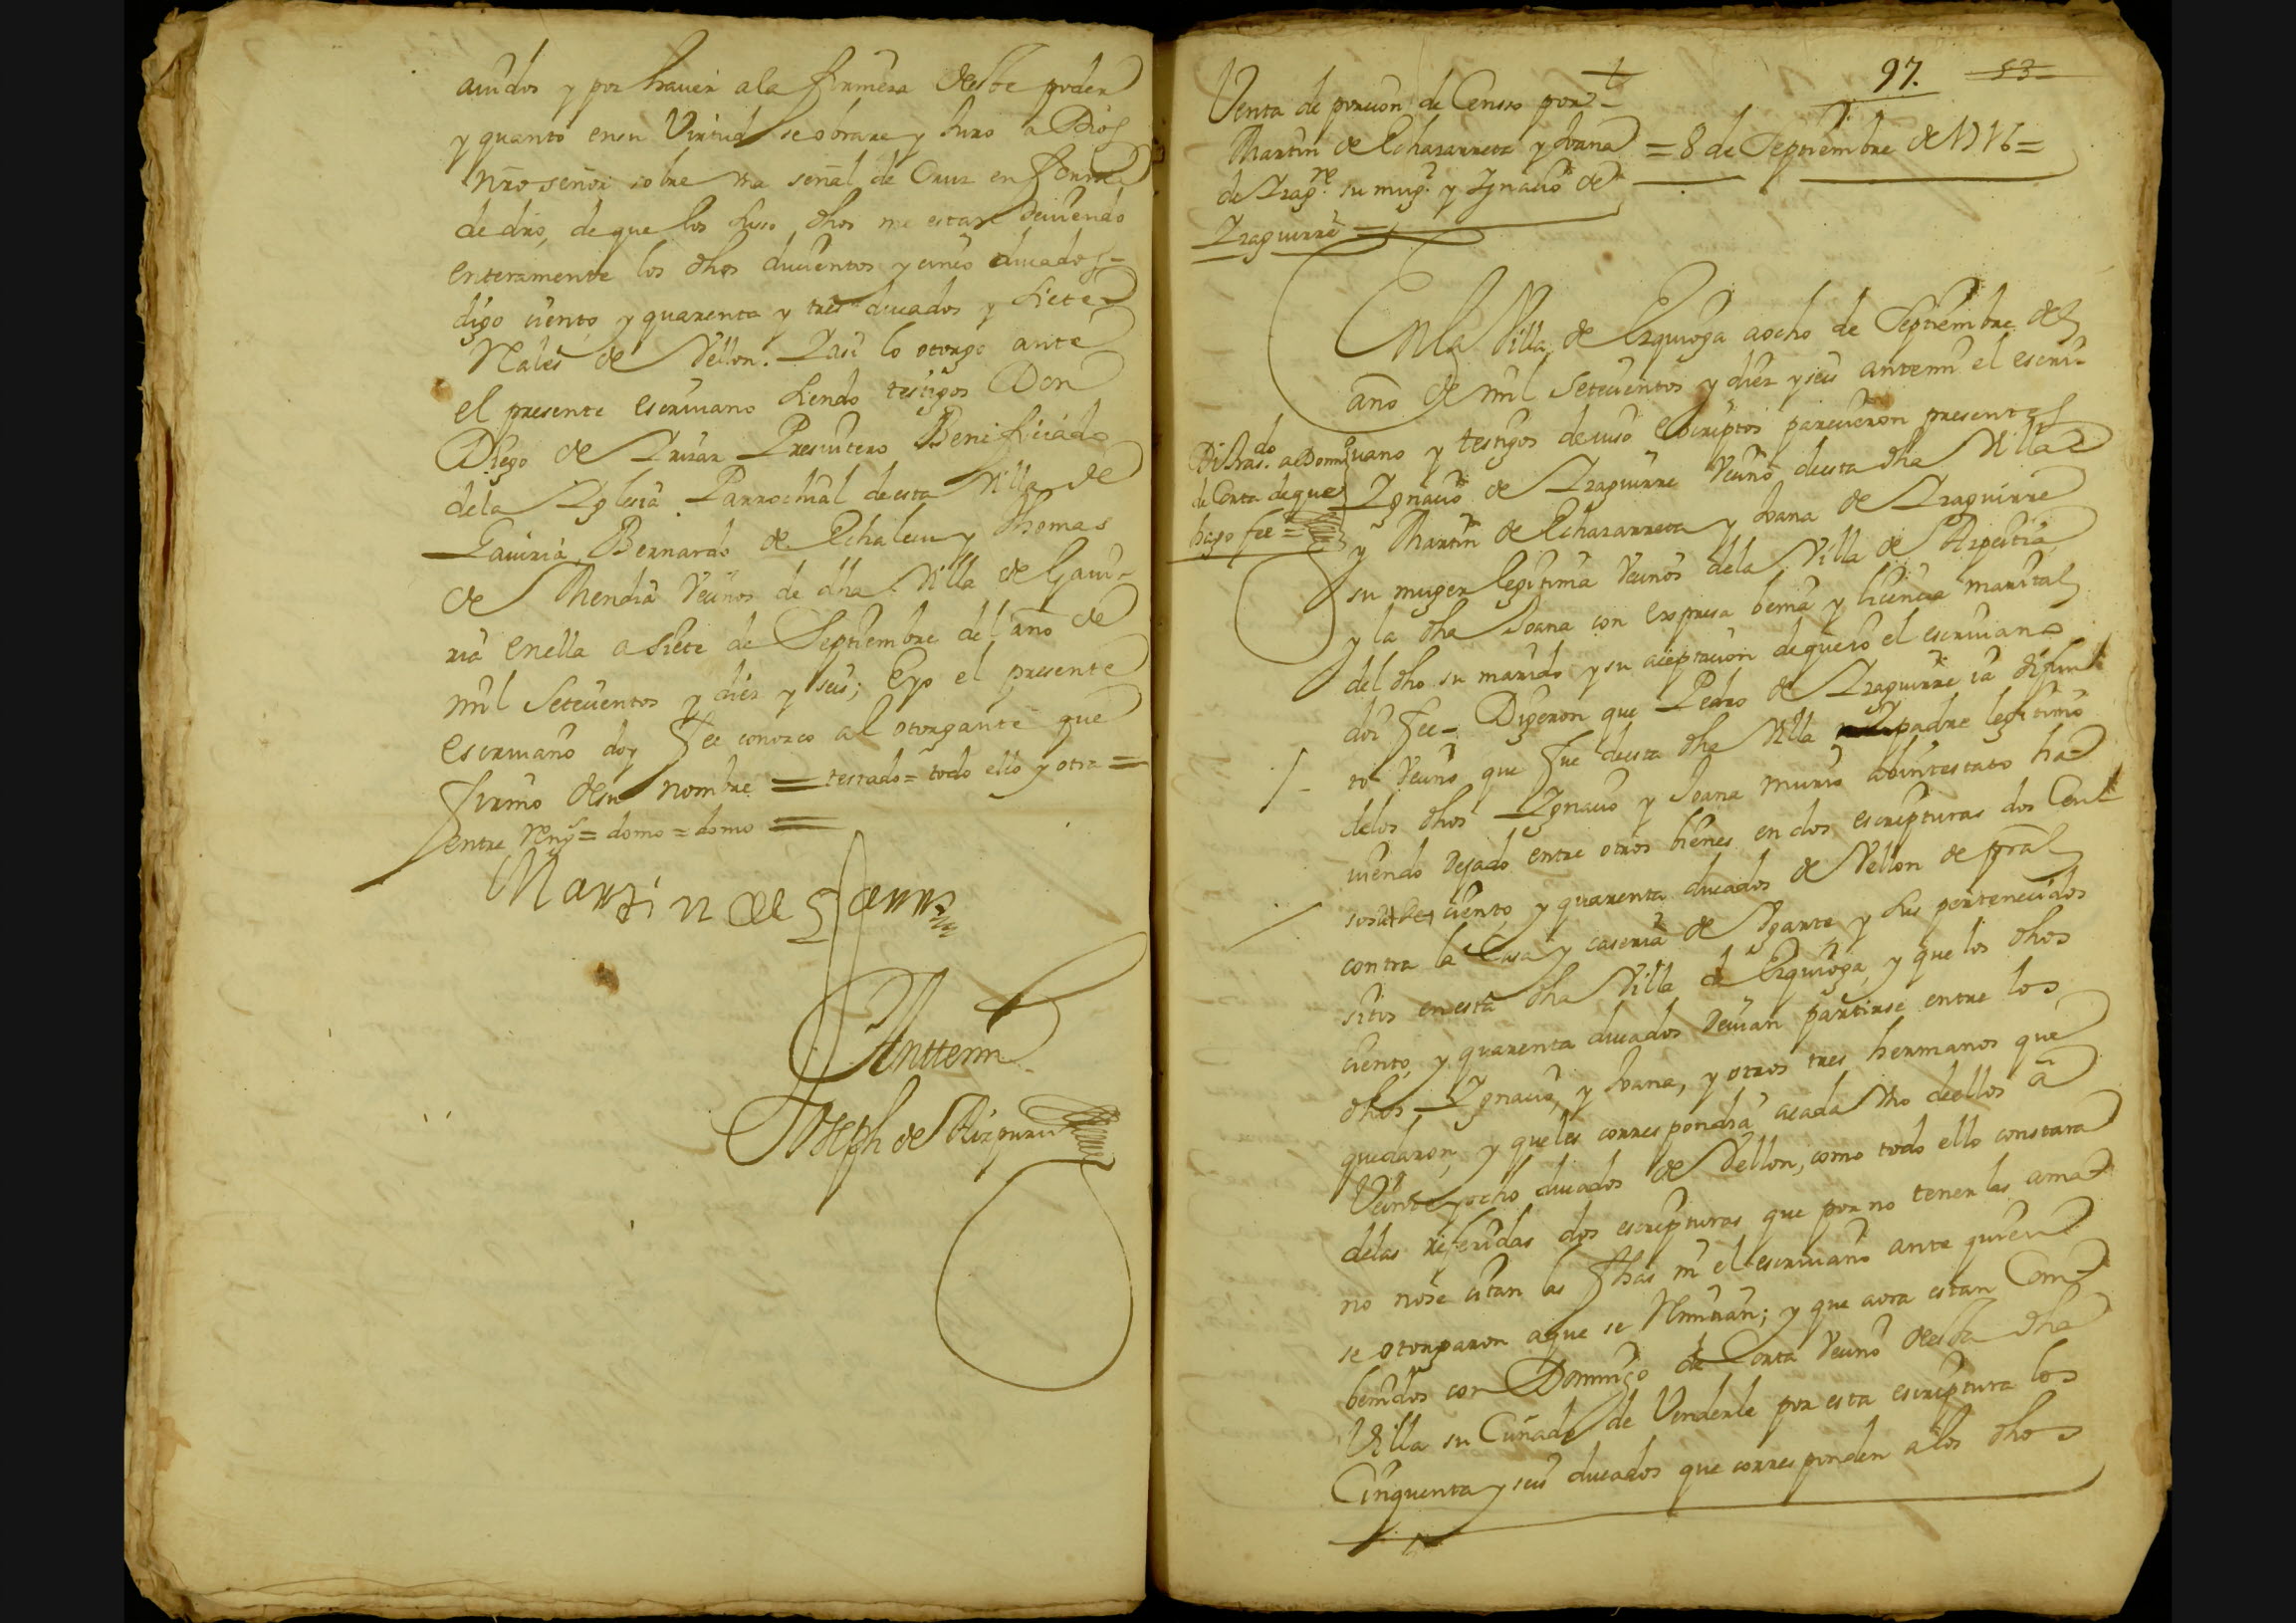 auidos y por hauer a la firmeza deste poder
y quanto en su Virtud se obrare y Juro a Dios
nro señor sobre vna señal de Cruz en forma
de dro, de que los suso dhos me estan deuiendo
enteramente los dhos ducientos y cinco ducados =
digo ciento y quarenta y tres ducados y siete
Reales de Vellon. Y asi lo otorgo ante
el presente escriuano siendo testigos Don
Diego de Presuitero Beneficiado
de la Yglesia Parrochial de esta Villa de
Gauiria Bernardo de Echalecu y Thomas
de Mendia Vecinos de dha Villa de Gaui-
ria en ella a siete de Septiembre del año de
mil Setecientos y diez y seis; Eyo el presente
escriuano doy fee conozco al otorgante que
firmo de su nombre = testado = todo ello y otra =
entre Rengs = domo = domo =
Martin de
Antte mi
Joseph de Aizpuru
97. 53
Venta de porcion de Censo por
Martin de Echazarreta y Joana
de Yzagre su mugr y Ygnacio de
Yzaguirre =
= 8 de Septiembre de 1716 =
En la Villa de Ezquioga a ocho de Septiembre del
año de mil Setecientos y diez y seis ante mi el escri-
uano y testigos de iuso escriptos parecieron presentes
Ygnacio de Yzaguirre Vecino de esta dha Villa
y Martin de Echazarreta y Joana de Yzaguirre
su muger legitima Vecinos de la Villa de Azpeitia
y la dha Joana con expresa benia y licencia marital
del dho su marido y su aceptacion de que io el escriuano
doi fee = Digeron que Pedro de Yzaguirre ia difun
to Vecino que fue de esta dha Villa padre legitimo
de los dhos Ygnacio y Joana murio abintestato ha-
uiendo dejado entre otros bienes en dos escripturas dos Cen-
sos de ciento y quarenta ducados de Vellon de pral
contra la Casa y caseria de Ygarte y sus pertenecidos
sitos en esta dha Villa de Ezquioga, y que los dhos
ciento y quarenta ducados deuian partirse entre los
dhos Ygnacio, y Joana, y otros tres hermanos que
quedaron, y que les correspondia a cada vno de ellos a
Veinte y ocho ducados de Vellon, como todo ello constara
de las referidas dos escripturas que por no tenerlas a ma-
no no se citan las fhas ni el escriuano ante quien
se otorgaron a que se Remitian; y que aora estan Com-
benidos con Domingo de Corta Vecino de esta dha
Villa su Cuñado de Venderle por esta escriptura los
Cinquenta y seis ducados que corresponden a los dhos
Di trasdo a Domgo
de Corta de que
hago fee =